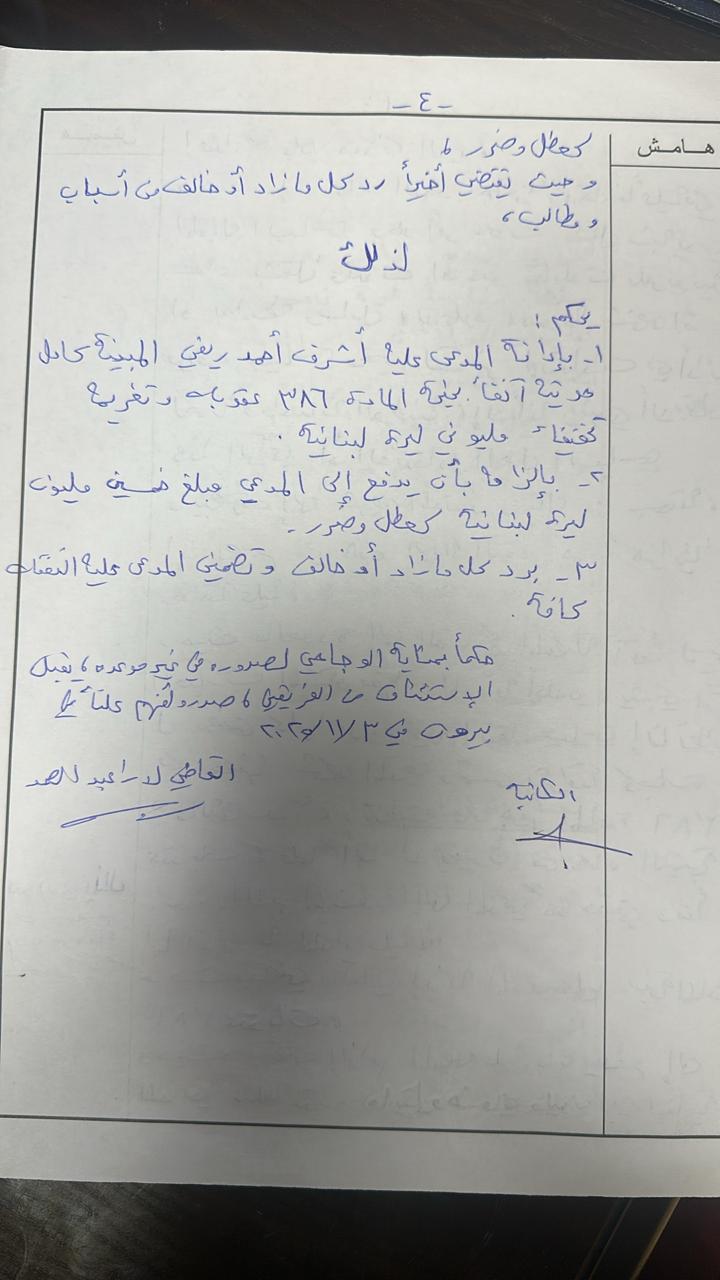 - ٤ -
هامش
كعطل وضرر ،
وحيث يقتضي أخيراً رد كل ما زاد أو خالف من أسباب
ومطالب،
لذلك
يحكم :
١- بإدانة المدعى عليه أشرف أحمد ريفي المبينة كامل
هويته آنفاً بجنحة المادة ٣٨٦ عقوبات وتغريمه
تخفيفاً مليوني ليرة لبنانية .
٢- بإلزامه بأن يدفع إلى المدعي مبلغ خمسين مليون
ليرة لبنانية كعطل وضرر .
٣- برد كل ما زاد أو خالف وتضمين المدعى عليه النفقات
كافة .
حكماً بمثابة الوجاهي لصدوره في غير موعده ، يقبل
الإستئناف من الفريقين ، صدر وأفهم علناً في
بيروت في
الكاتبة
القاضي لارا عبد الصمد